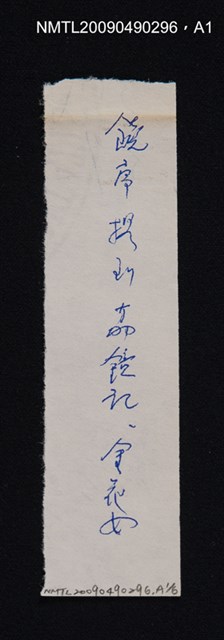 NMTL20090490296，A1
饒席提到荔鏡記、金花女
NMTL20090490296.A1/6